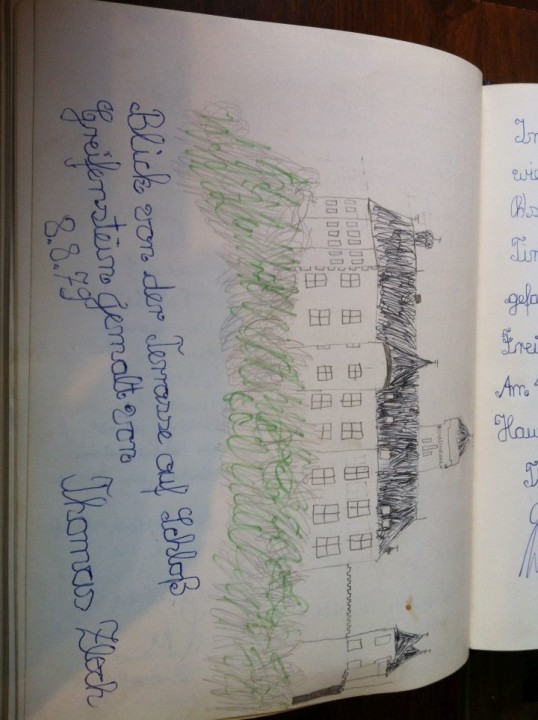 Blick von der Terrasse auf Schloß
Greifenstein gemalt von
8.8.79 Thomas Zloch
wie
Tim
gefa
Frei
Am
Hau